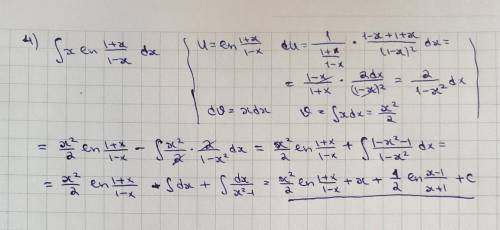 4) ∫ x ln (1+x)/(1-x) dx
U = ln (1+x)/(1-x) du = 1/((1+x)/(1-x)) · (1-x+1+x)/(1-x)² dx =
= (1-x)/(1+x) · 2dx/(1-x)² = 2/(1-x²) dx
dϑ = xdx ϑ = ∫xdx = x²/2
= x²/2 ln (1+x)/(1-x) - ∫ x²/2 · 2/(1-x²) dx = x²/2 ln (1+x)/(1-x) + ∫ (1-x²-1)/(1-x²) dx =
= x²/2 ln (1+x)/(1-x) + ∫dx + ∫ dx/(x²-1) = x²/2 ln (1+x)/(1-x) + x + 1/2 ln (x-1)/(x+1) + C